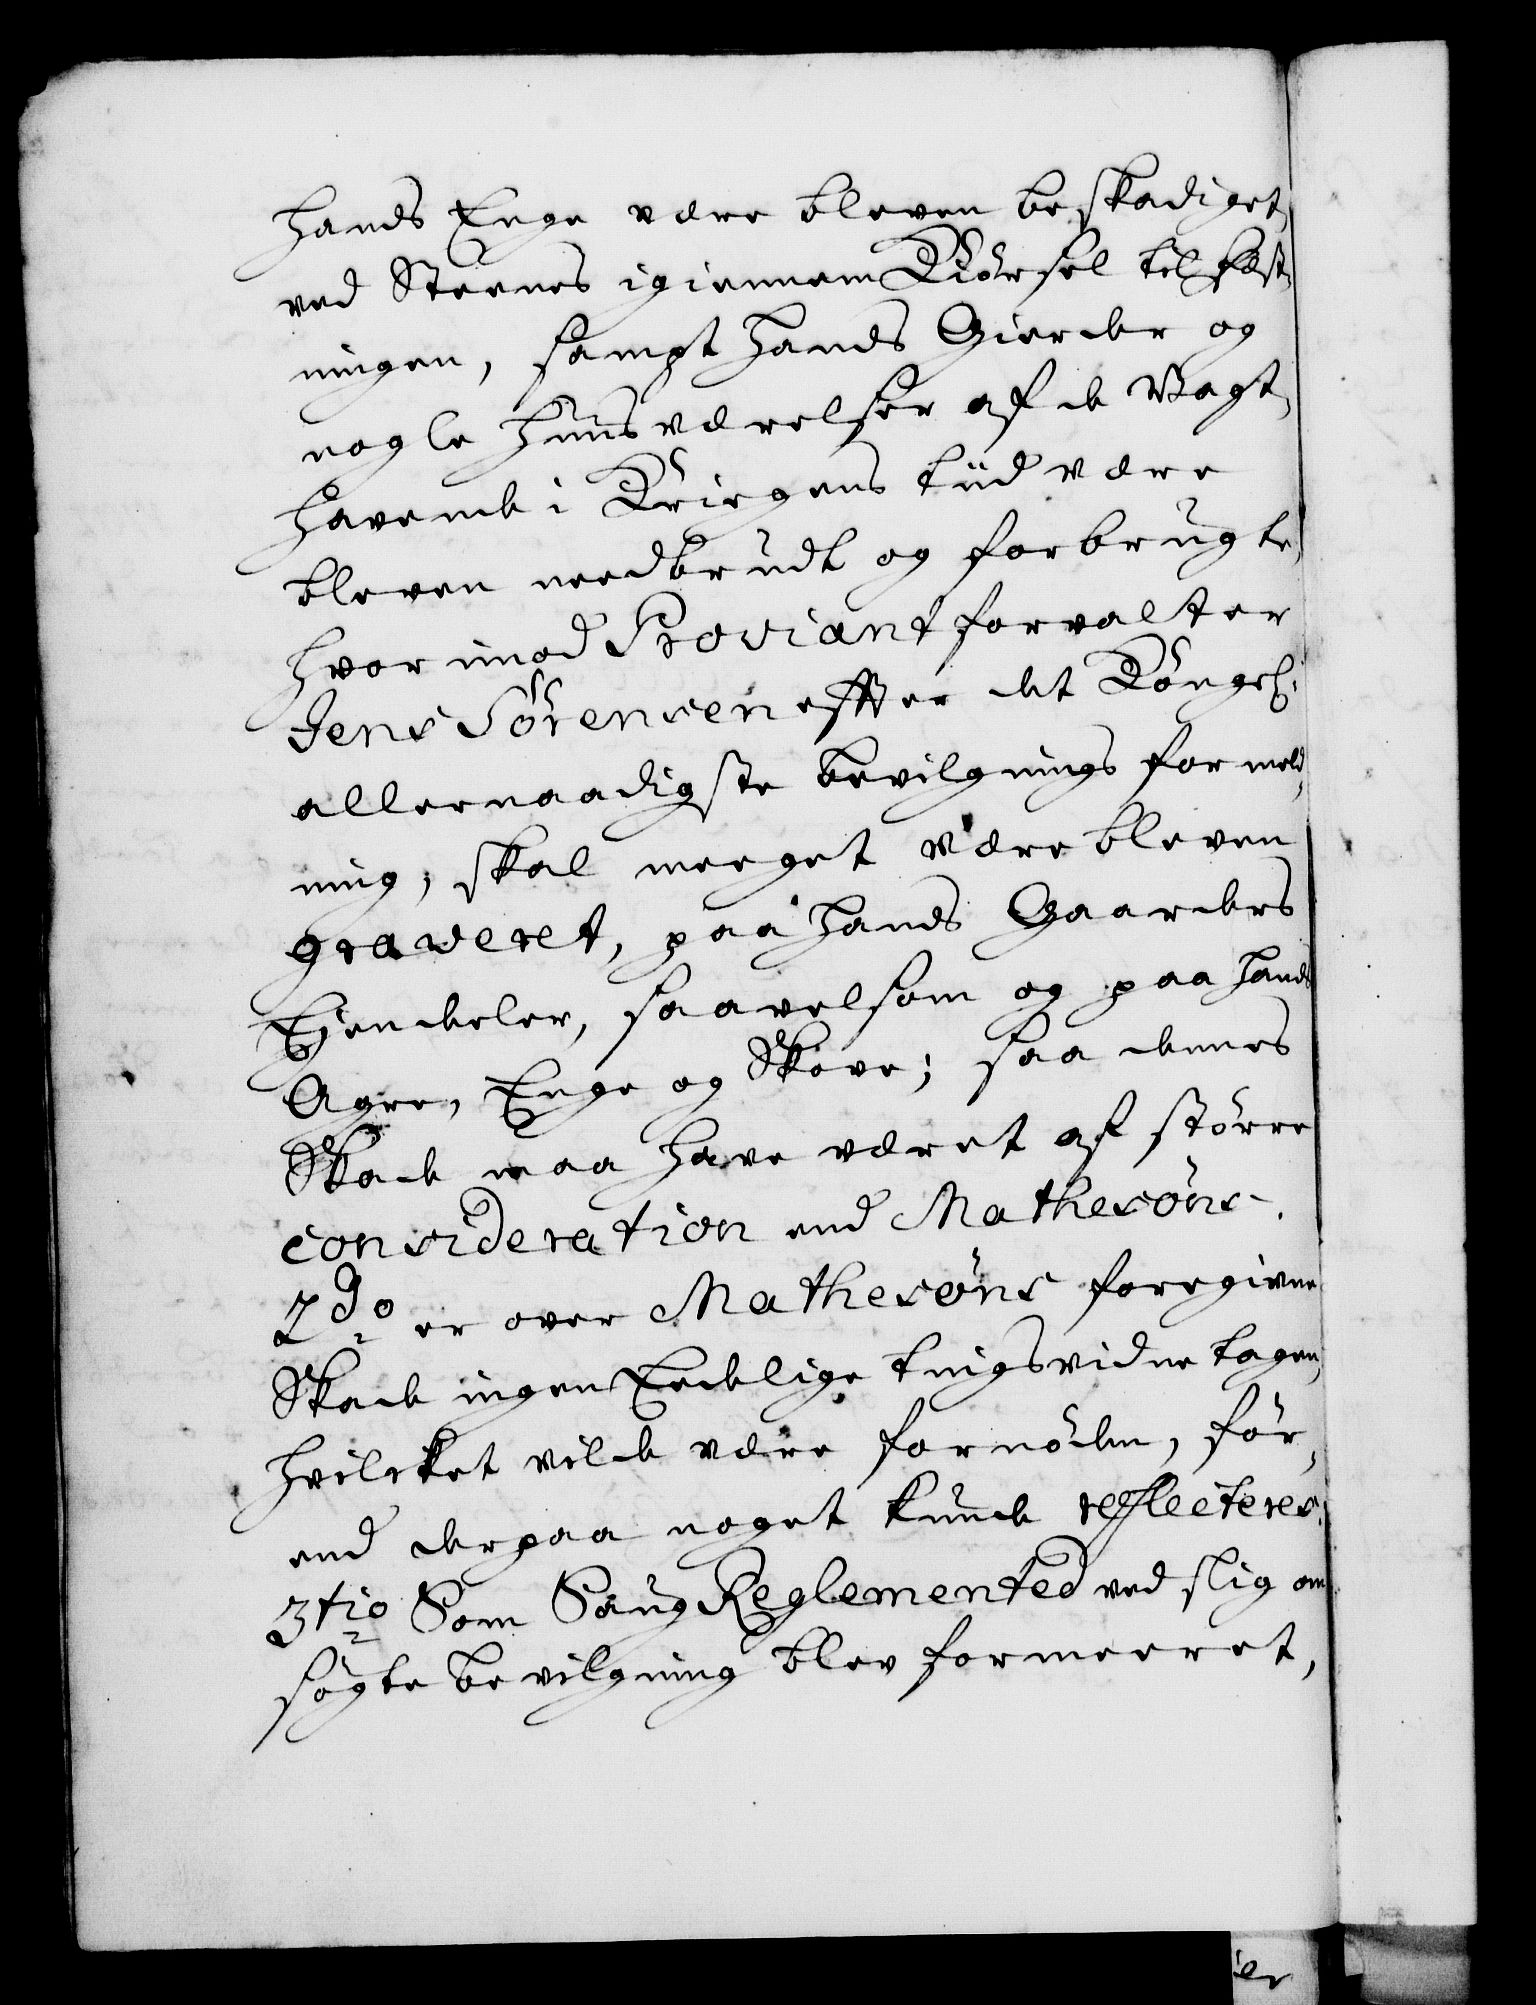 hands Enge være bleven beskadiget
ved Steenes igiennem Kiörsel til fæst-
ningen, sampt hands Gierder og
nogle Huusværelser af de Vagt-
havende i Krigens tiid være
bleven needbrudt og forbrugte,
hvorimod Proviantforvalter
Jens Sörensen effter det Kongel:
allernaadigste bevilgnings formeld-
ning, skal meeget være bleven
graveret, paa hands Gaarders
Ejendeler, saavelsom og paa hands
Agre, Enge og Skove; saa dennes
Skade maa have været af större
consideration end Mathesöns.
2do er over Mathesöns foregivne
Skade ingen Eedelige tingsvidne tagen,
hvilcket vilde være fornöden, för-
end derpaa noget kunde reflecteres.
3tio Som Saug Reglemented ved slig an-
sögte bevilgning blev formeeret,
er